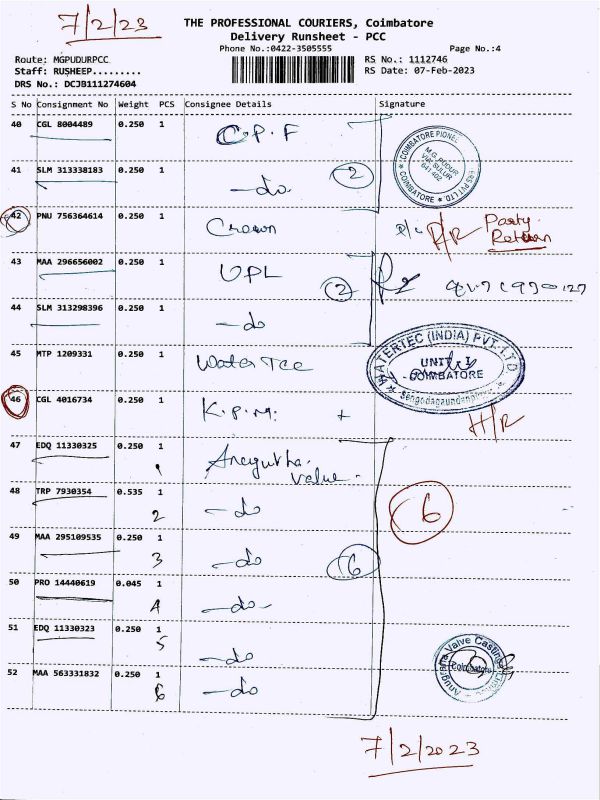 7/2/23
THE PROFESSIONAL COURIERS, Coimbatore
Delivery Runsheet - PCC
Phone No.:0422-3505555
Page No.:4
Route: MGPUDURPCC
RS No.: 1112746
Staff: RUSHEEP.........
RS Date: 07-Feb-2023
DRS No.: DCJB111274604
S No Consignment No Weight PCS Consignee Details Signature
40 CGL 8004489 0.250 1 C.P.F
COIMBATORE PIONEERS PVT LTD COIMBATORE
M.G. PUDUR
VIA SULUR
641 402
41 SLM 313338183 0.250 1 -do. 2
42 PNU 756364614 0.250 1 Crown R/R Party Return
43 MAA 296656002 0.250 1 UPL 2
44 SLM 313298396 0.250 1 -do
45 MTP 1209331 0.250 1 Water Tec
WATERTEC (INDIA) PVT. LTD.
UNIT - I
COIMBATORE
46 CGL 4016734 0.250 1 K.P.M. + H/R
47 EDQ 11330325 0.250 1 1 Anugraha Value.
48 TRP 7930354 0.535 1 2 -do 6
49 MAA 295109535 0.250 1 3 -do 6
50 PRO 14440619 0.045 1 4 -do-
51 EDQ 11330323 0.250 1 5 -do
52 MAA 563331832 0.250 1 6 -do
Anugraha Valve Castings Limited
Coimbatore
7/2/2023